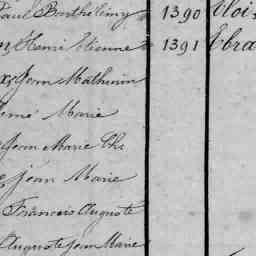 Paul Barthélémy 1390 Eloi
Henri Etienne 1391 Ebra
Jean Mathurin
Marie
Jean Marie
Jean Marie
François Auguste
Auguste Jean Marie